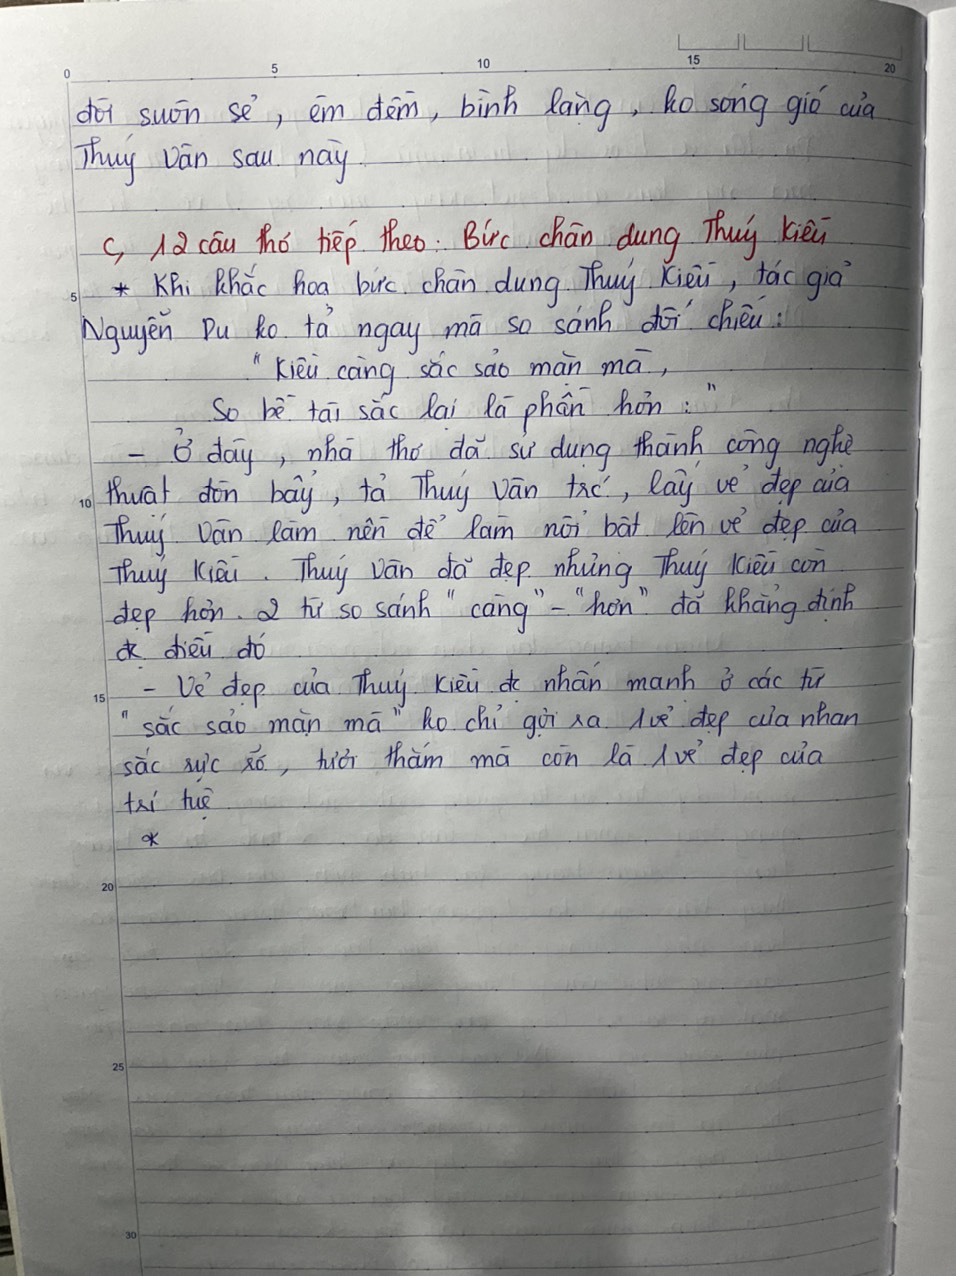 0 5 10 15 20
đời suôn sẻ, êm đềm, bình lặng, ko sóng gió của
Thuý Vân sau này.
c, 12 câu thơ tiếp theo: Bức chân dung Thuý Kiều
* Khi khắc hoạ bức chân dung Thuý Kiều, tác giả
5
Nguyễn Du ko tả ngay mà so sánh đối chiếu:
"Kiều càng sắc sảo mặn mà,
So bề tài sắc lại là phần hơn:"
- Ở đây, nhà thơ đã sử dụng thành công nghệ
10 thuật đòn bẩy, tả Thuý Vân trc, lấy vẻ đẹp của
Thuý Vân làm nền để làm nổi bật lên vẻ đẹp của
Thuý Kiều. Thuý Vân đã đẹp nhưng Thuý Kiều còn
đẹp hơn. 2 từ so sánh "càng" - "hơn" đã khẳng định
đc điều đó
15 - Vẻ đẹp của Thuý Kiều đc nhấn mạnh ở các từ
"sắc sảo mặn mà" ko chỉ gợi ra 1 vẻ đẹp của nhan
sắc rực rỡ, tươi thắm mà còn là 1 vẻ đẹp của
trí tuệ
*
20
25
30